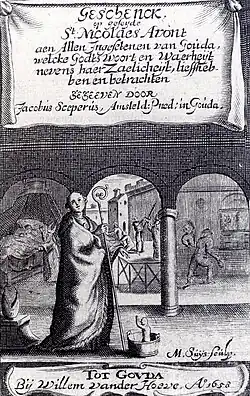 GESCHENCK.
op geseyde
St. NICOLAES AVONT
aen Allen Ingesetenen van Gouda,
welcke Godts woort en Waerheyt
nevens haer Zaelicheyt, liefheb-
ben en betrachten
GEGEEVEN DOOR
Jacobus Sceperus, Amsteld: Pred: in Gouda.
M. Suÿs sculp.
TOT GOUDA
Bij Willem vander Hoeve, A° 1658